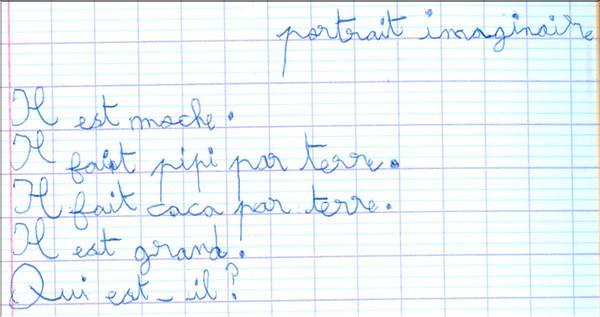 portrait imaginaire
Il est moche.
Il fait pipi par terre.
Il fait caca par terre.
Il est grand.
Qui est-il?